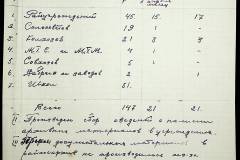 1. Райучреждений 45. 15. 17
2. Сельсоветов 19 1 -
3. Колхозов 21 8 3
4. М.Т.С. и М.Т.М. 4 1 -
5. Совхозов 5 -
6. Фабрик и заводов 2 1
7. Школ 51.
Всего 147 21. 21.
II Произведен сбор сведений о наличии
архивных материалов в учреждениях.
документальных материалов в
райгосархив не производилось из-за